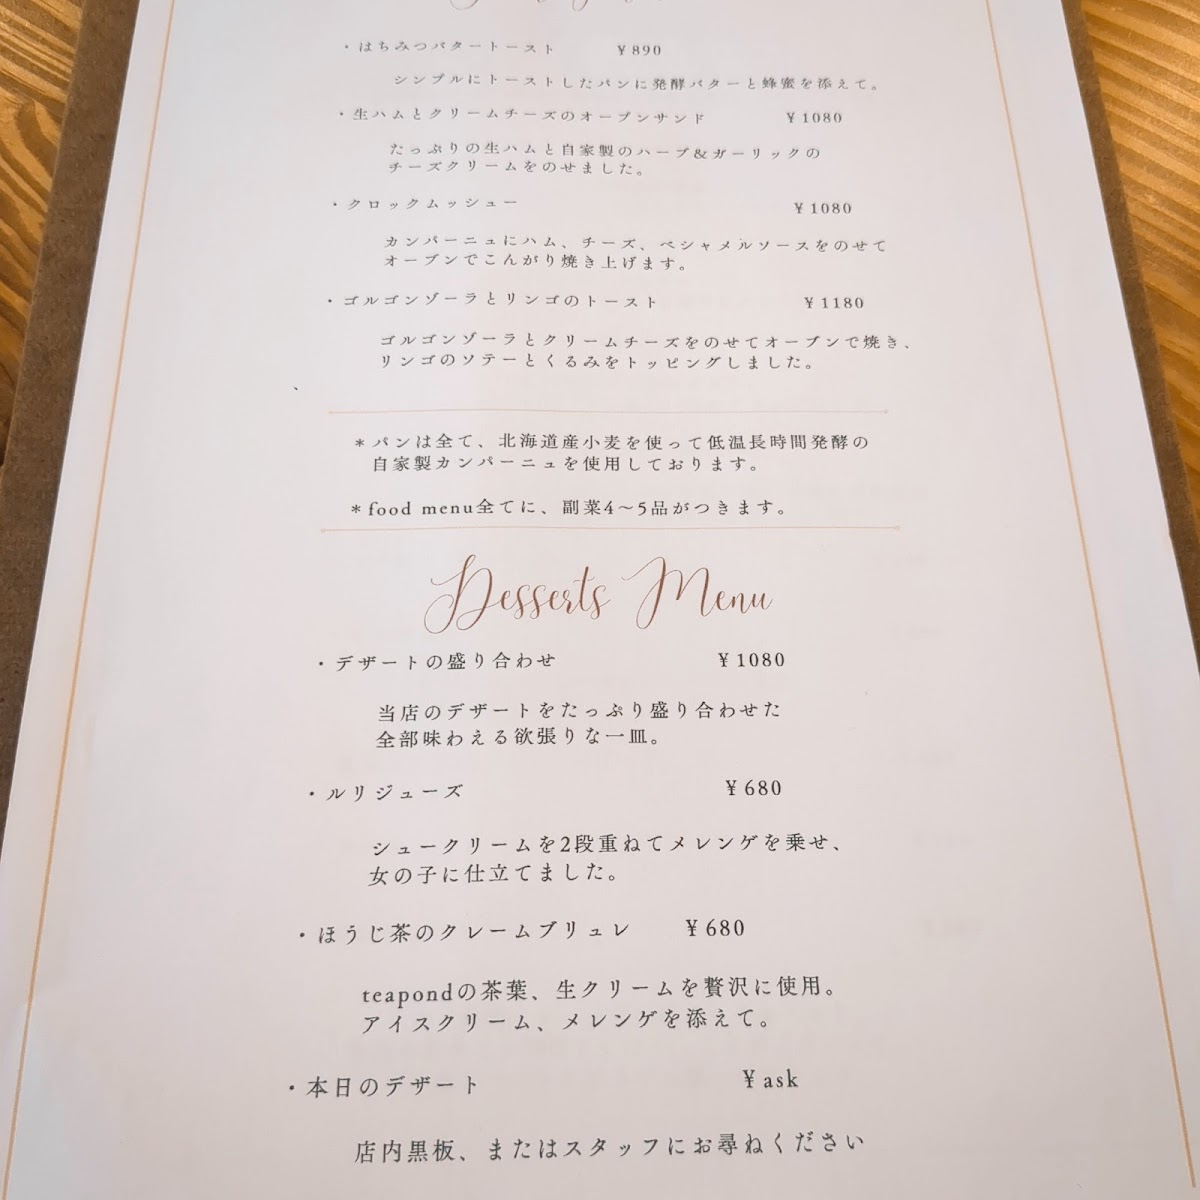 ・はちみつバタートースト ¥890
シンプルにトーストしたパンに発酵バターと蜂蜜を添えて。
・生ハムとクリームチーズのオープンサンド ¥1080
たっぷりの生ハムと自家製のハーブ&ガーリックの
チーズクリームをのせました。
・クロックムッシュー ¥1080
カンパーニュにハム、チーズ、ベシャメルソースをのせて
オーブンでこんがり焼き上げます。
・ゴルゴンゾーラとリンゴのトースト ¥1180
ゴルゴンゾーラとクリームチーズをのせてオーブンで焼き、
リンゴのソテーとくるみをトッピングしました。
、
＊パンは全て、北海道産小麦を使って低温長時間発酵の
自家製カンパーニュを使用しております。
＊food menu全てに、副菜4〜5品がつきます。
Desserts Menu
・デザートの盛り合わせ ¥1080
当店のデザートをたっぷり盛り合わせた
全部味わえる欲張りな一皿。
・ルリジューズ ¥680
シュークリームを2段重ねてメレンゲを乗せ、
女の子に仕立てました。
・ほうじ茶のクレームブリュレ ¥680
teapondの茶葉、生クリームを贅沢に使用。
アイスクリーム、メレンゲを添えて。
・本日のデザート ¥ask
店内黒板、またはスタッフにお尋ねください